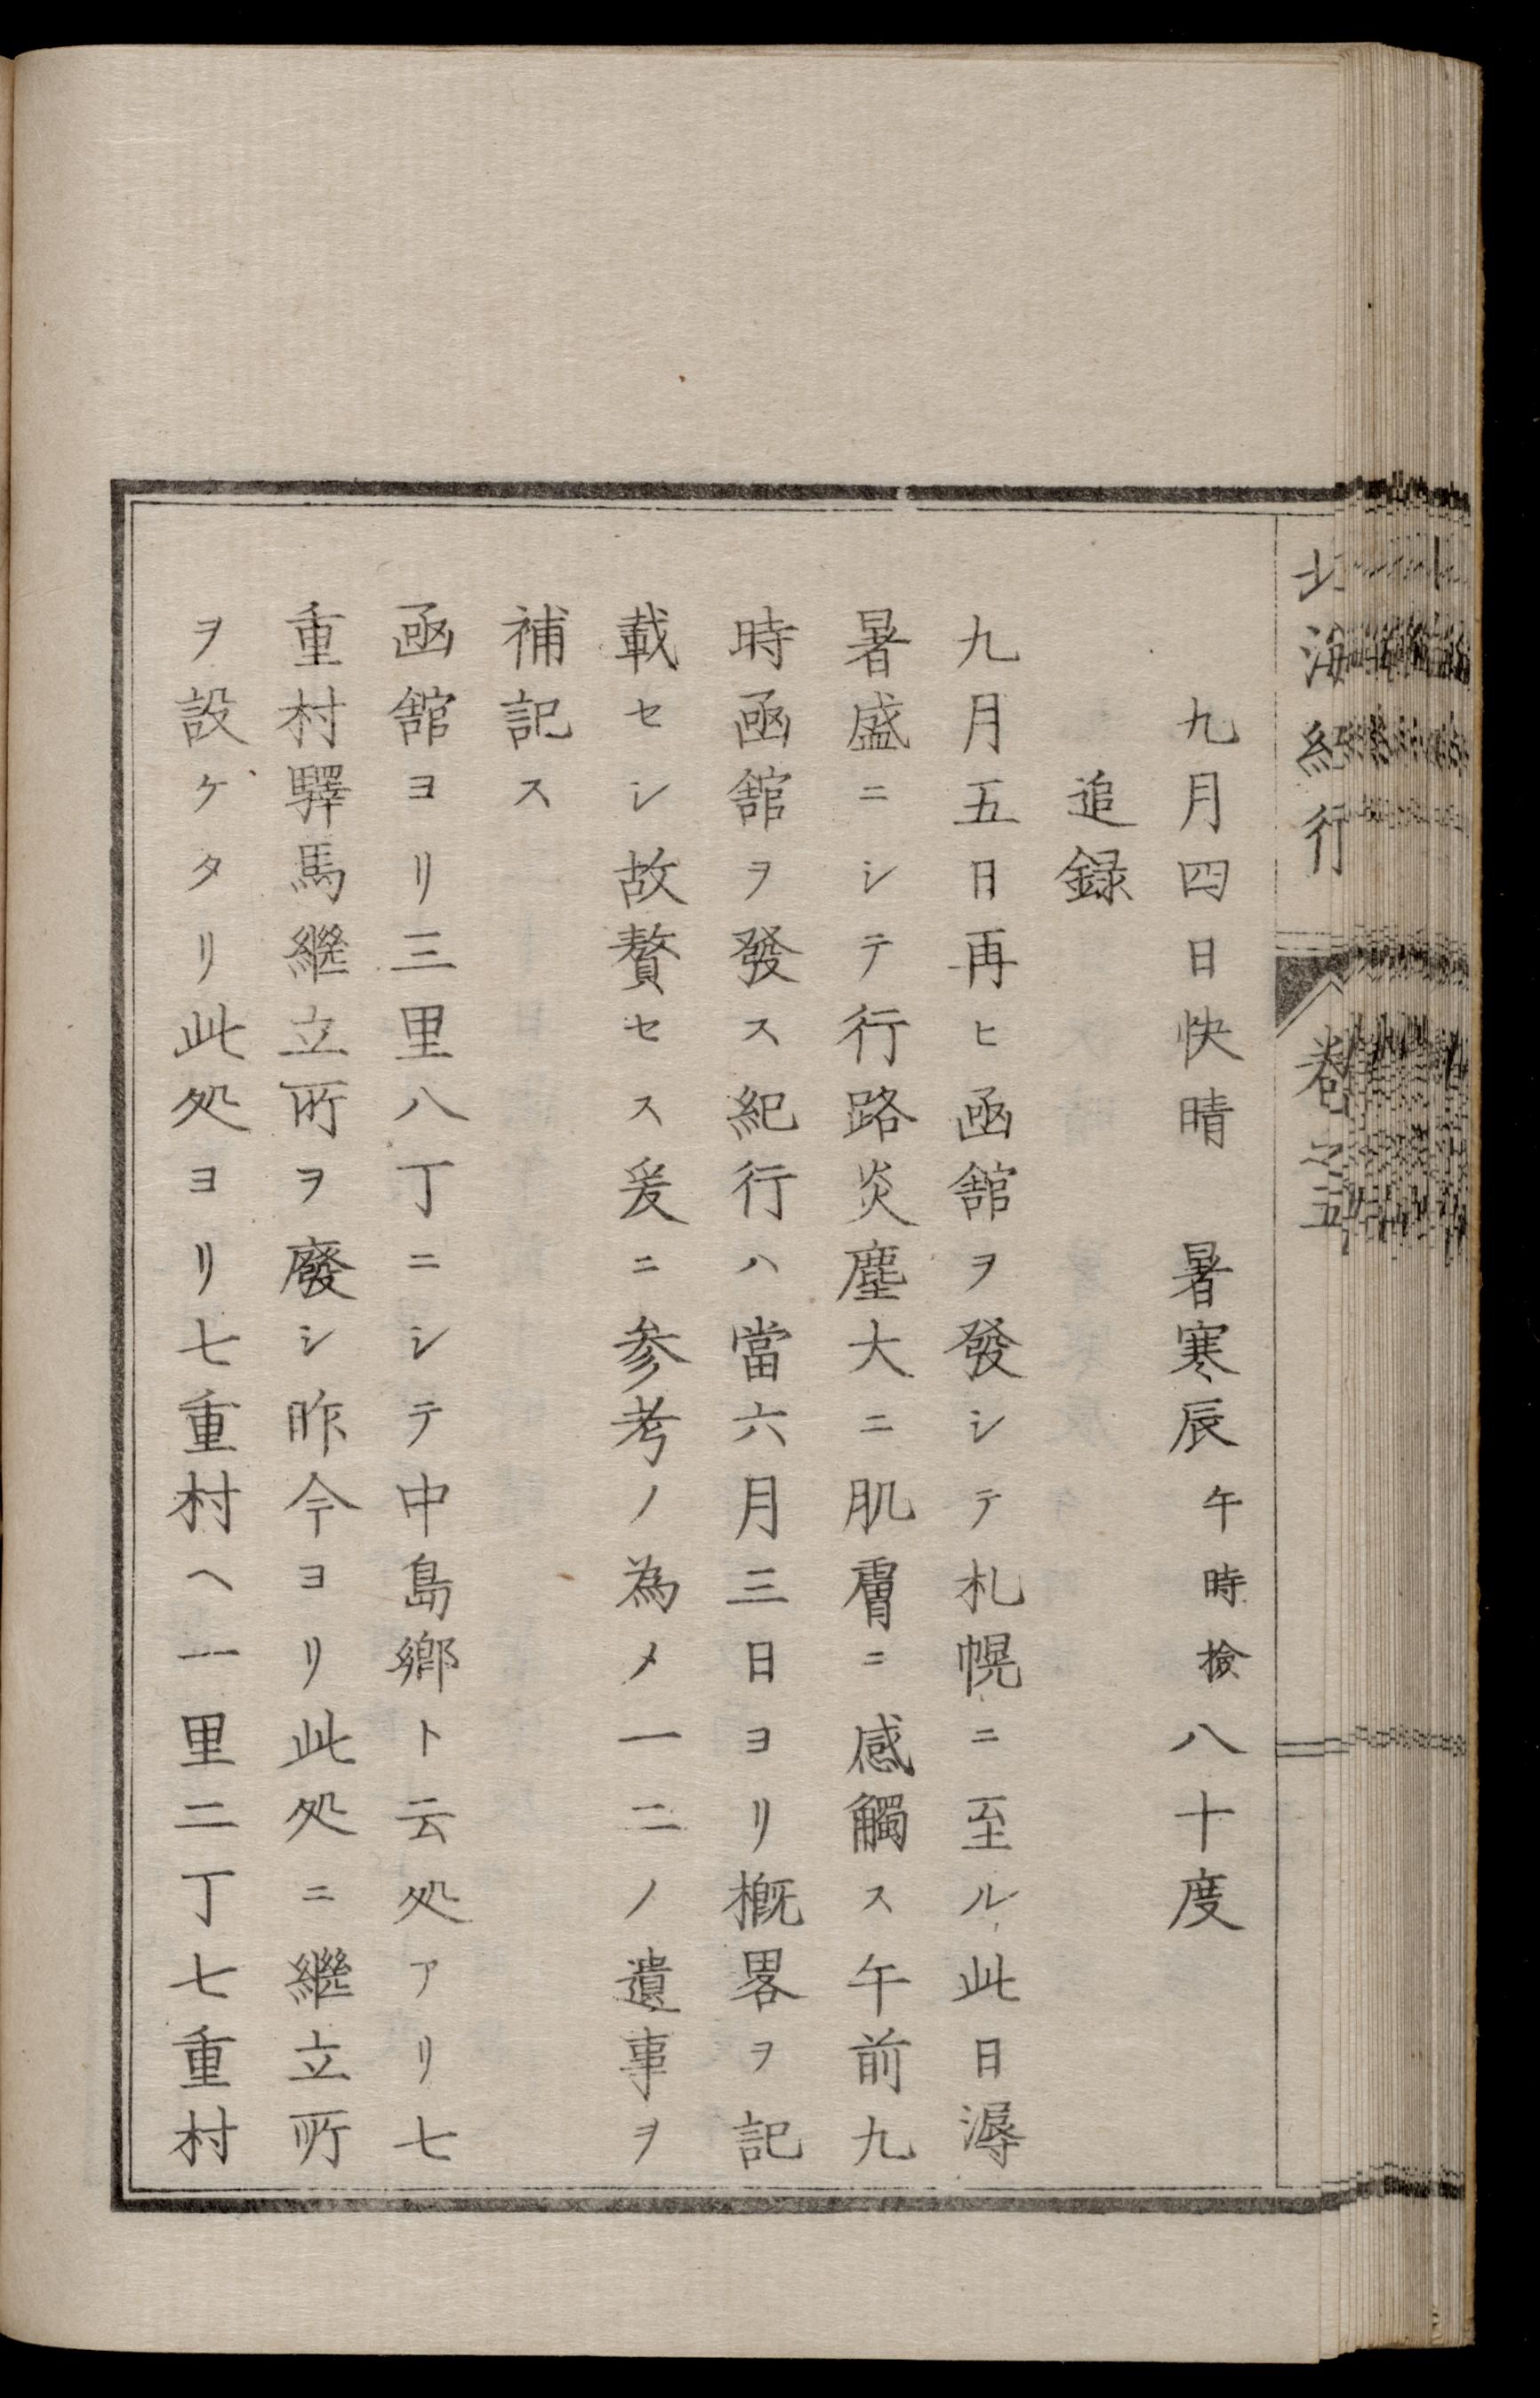 北海紀行 巻之五
九月四日快晴 暑寒辰午時撿八十度
追録
九月五日再ヒ凾舘ヲ發シテ札幌ニ至ル此日溽
暑盛ニシテ行路炎塵大ニ肌膚ニ感觸ス午前九
時凾舘ヲ發ス紀行ハ當六月三日ヨリ概畧ヲ記
載セシ故贅セス爰ニ参考ノ為メ一二ノ遺事ヲ
補記ス
凾舘ヨリ三里八丁ニシテ中島鄉ト云処アリ七
重村驛馬繼立所ヲ廢シ昨今ヨリ此処ニ繼立所
ヲ設ケタリ此処ヨリ七重村ヘ一里二丁七重村